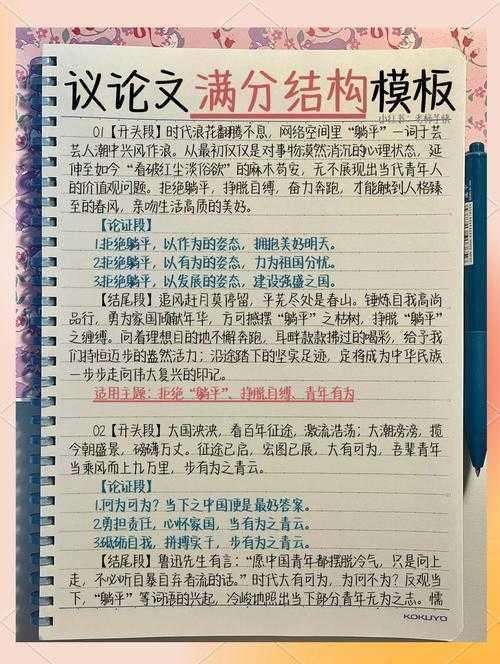 议论文满分结构模板
01【开头段】时代浪花翻腾不息，网络空间里“躺平”一词于芸
芸人潮中兴风作浪。从最初仅仅是对事物漠然消沉的心理状态，延
伸至如今“看破红尘淡俗欲”的麻木苟安，无不展现出当代青年人
的价值观问题。拒绝躺平，挣脱自缚，奋力奔跑，才能触到人格臻
至的春风，亲吻生活高质的美好。
【论证段】
1.拒绝躺平，以作为的姿态，拥抱美好明天。
2.拒绝躺平，以有为的姿态，力为祖国分忧。
3.拒绝躺平，以发展的姿态，建设强盛之国。
【结尾段】追风赶月莫停留，平芜尽处是春山。锤炼自我高尚
品行，勇为家国倾献年华，方可撼摆“躺平”之枯树，挣脱“躺平”
之缠缚。向着理想目的地不懈奔跑，耳畔款款拂过的喝彩，给予我
们持恒迈步的盎然活力；沿途踏下的坚实足迹，定将成为中华民族
一步步走向伟大复兴的印记。
适用主题：拒绝“躺平”、挣脱自缚、青年有为
02【开头段】大国泱泱，看百年征途，激流浩荡；大潮滂滂，揽
今朝盛景，磅礴万丈。征途已启，宏图已展，大有可为，吾辈青年
当乘风而上九万里，步有为之青云。
【论证段】
1.何为可为？当下之中国便是最好答案。
2.勇担责任，心怀家国，当有为之青云。
3.砥砺自我，拼搏实干，步有为之青云。
【结尾段】鲁迅先生有言：“愿中国青年都摆脱冷气，只是向上
走，不必听自暴自弃者流的话。”时代大有可为，为何不为？反观当
下，“躺平”等词语的兴起，冷峻地照出当下部分青年无为之志。懦
KOKUYO